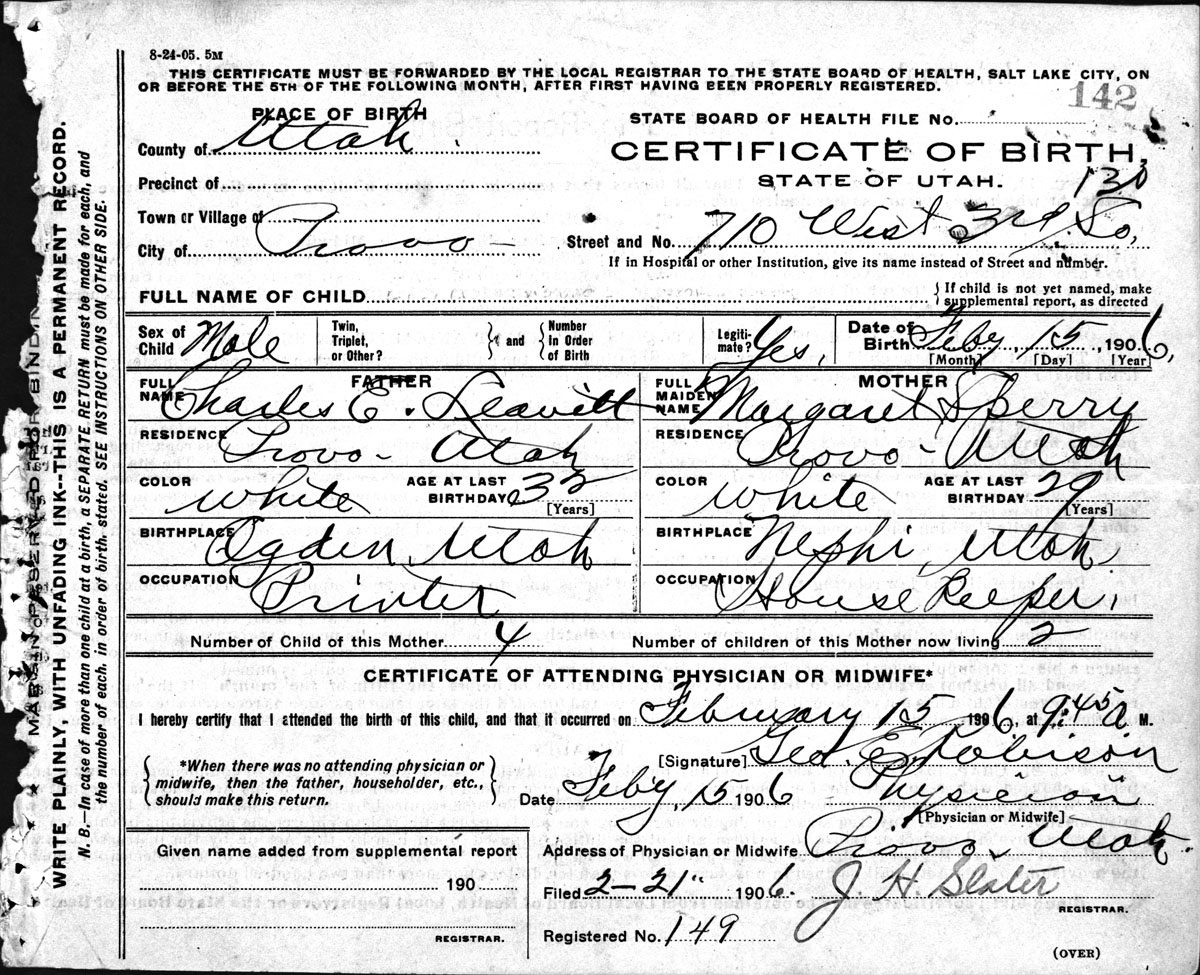 8-24-05. 5M
THIS CERTIFICATE MUST BE FORWARDED BY THE LOCAL REGISTRAR TO THE STATE BOARD OF HEALTH, SALT LAKE CITY, ON
OR BEFORE THE 5TH OF THE FOLLOWING MONTH, AFTER FIRST HAVING BEEN PROPERLY REGISTERED.
142
PLACE OF BIRTH
STATE BOARD OF HEALTH FILE No.
County of Utah.
CERTIFICATE OF BIRTH,
Precinct of
STATE OF UTAH. 130
Town or Village of
City of Provo - Street and No. 710 West 3rd. So,
If in Hospital or other Institution, give its name instead of Street and number.
FULL NAME OF CHILD
If child is not yet named, make
supplemental report, as directed
Sex of Child Male Twin, Triplet, or Other? and Number In Order of Birth Legiti-mate? Yes, Date of Birth Feby, 15, 1906,
[Month] [Day] [Year]
FATHER MOTHER
FULL NAME Charles E. Leavitt FULL MAIDEN NAME Margaret Sperry
RESIDENCE Provo - Utah RESIDENCE Provo - Utah
COLOR White AGE AT LAST BIRTHDAY 32 [Years] COLOR White AGE AT LAST BIRTHDAY 29 [Years]
BIRTHPLACE Ogden, Utah BIRTHPLACE Nephi, Utah,
OCCUPATION Printer OCCUPATION House Keeper,
Number of Child of this Mother 4 Number of children of this Mother now living 2
CERTIFICATE OF ATTENDING PHYSICIAN OR MIDWIFE*
I hereby certify that I attended the birth of this child, and that it occurred on February 15 1906, at 9:45 A M.
[Signature] Geo. E. Robison
*When there was no attending physician or
midwife, then the father, householder, etc.,
should make this return.
Date Feby, 15 1906 Physician
[Physician or Midwife]
Given name added from supplemental report
Address of Physician or Midwife Provo, Utah.
190
Filed 2-21" 1906. J. H. Slater
REGISTRAR.
REGISTRAR.
Registered No. 149
(OVER)
MARGIN RESERVED FOR BINDING
WRITE PLAINLY, WITH UNFADING INK--THIS IS A PERMANENT RECORD.
N. B.—In case of more than one child at a birth, a SEPARATE RETURN must be made for each, and
the number of each, in order of birth, stated. SEE INSTRUCTIONS ON OTHER SIDE.